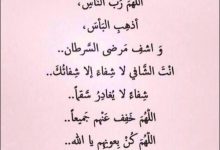 اللهُمَّ رَبَّ النَّاسِ،
أذهِبِ البَأسَ،
وَ اشفِ مَرضى السَّرطان..
انْتَ الشَّافي لا شِفاءَ إلا شِفائُكَ..
شِفاءً لا يُغادِرُ سَقَماً..
اللَّهُمَّ خَفِف عَنْهم جَميعاً..
اللَّهُمَّ كُنْ بِعونِهم يا الله..